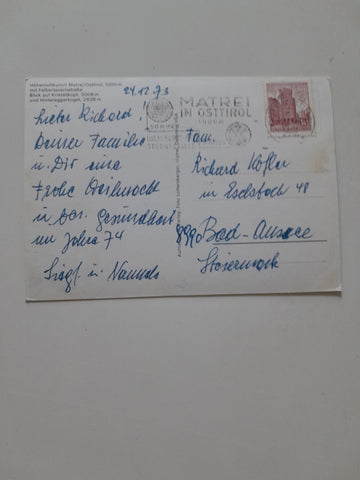 Höhenluftkurort Matrei/Osttirol, 1000 m
mit Felbertauernstraße
Blick auf Kristallkopf, 3008 m
und Hintereggerkogel, 2638 m
24.12.73
MATREI
IN OSTTIROL
1000 m
SOMMER
Lieber Richard
Deiner Familie
u. Dir eine
Frohe Weihnacht
u. bes. Gesundheit
im Jahre 74
Sigl u.
Fam.
Richard Köfler
in Eselsbach 48
8990 Bad-Aussee
Steiermark